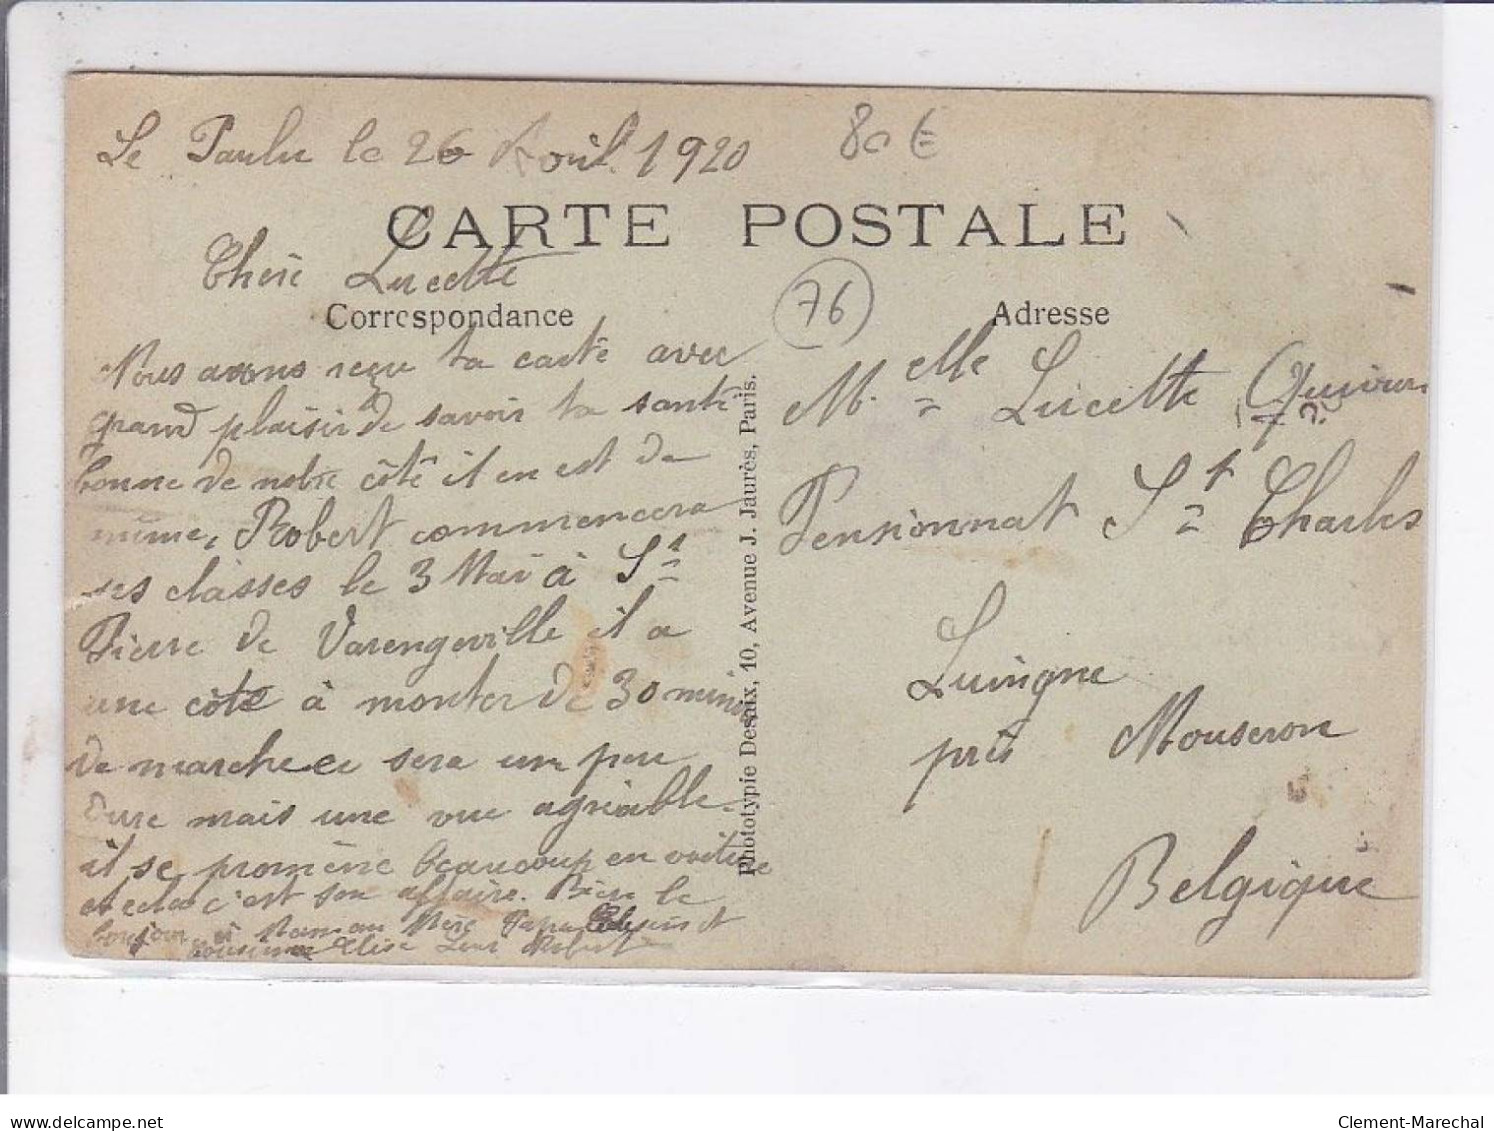 Le Paulu le 26 Avril 1920
80 €
CARTE POSTALE
Chere Lucette
Correspondance
76
Adresse
Nous avons reçu ta carte avec
grand plaisir de savoir ta santé
bonne de notre côté il en est de
même, Robert commencera
ses classes le 3 Mai à St
Pierre de Varengeville il a
une côte à monter de 30 minu
de marche ce sera un peu
dure mais une vue agréable
il se promène beaucoup en voiture
et cela c'est son affaire. Bien le
bonjour à Maman Mère Papa et
cousine Elise Leur Robert
Phototypie Desaix, 10, Avenue J. Jaurès, Paris.
Melle Lucette
Pensionnat St Charles
Luingne
près Mouseron
Belgique
www.delcampe.net
Clement-Marechal